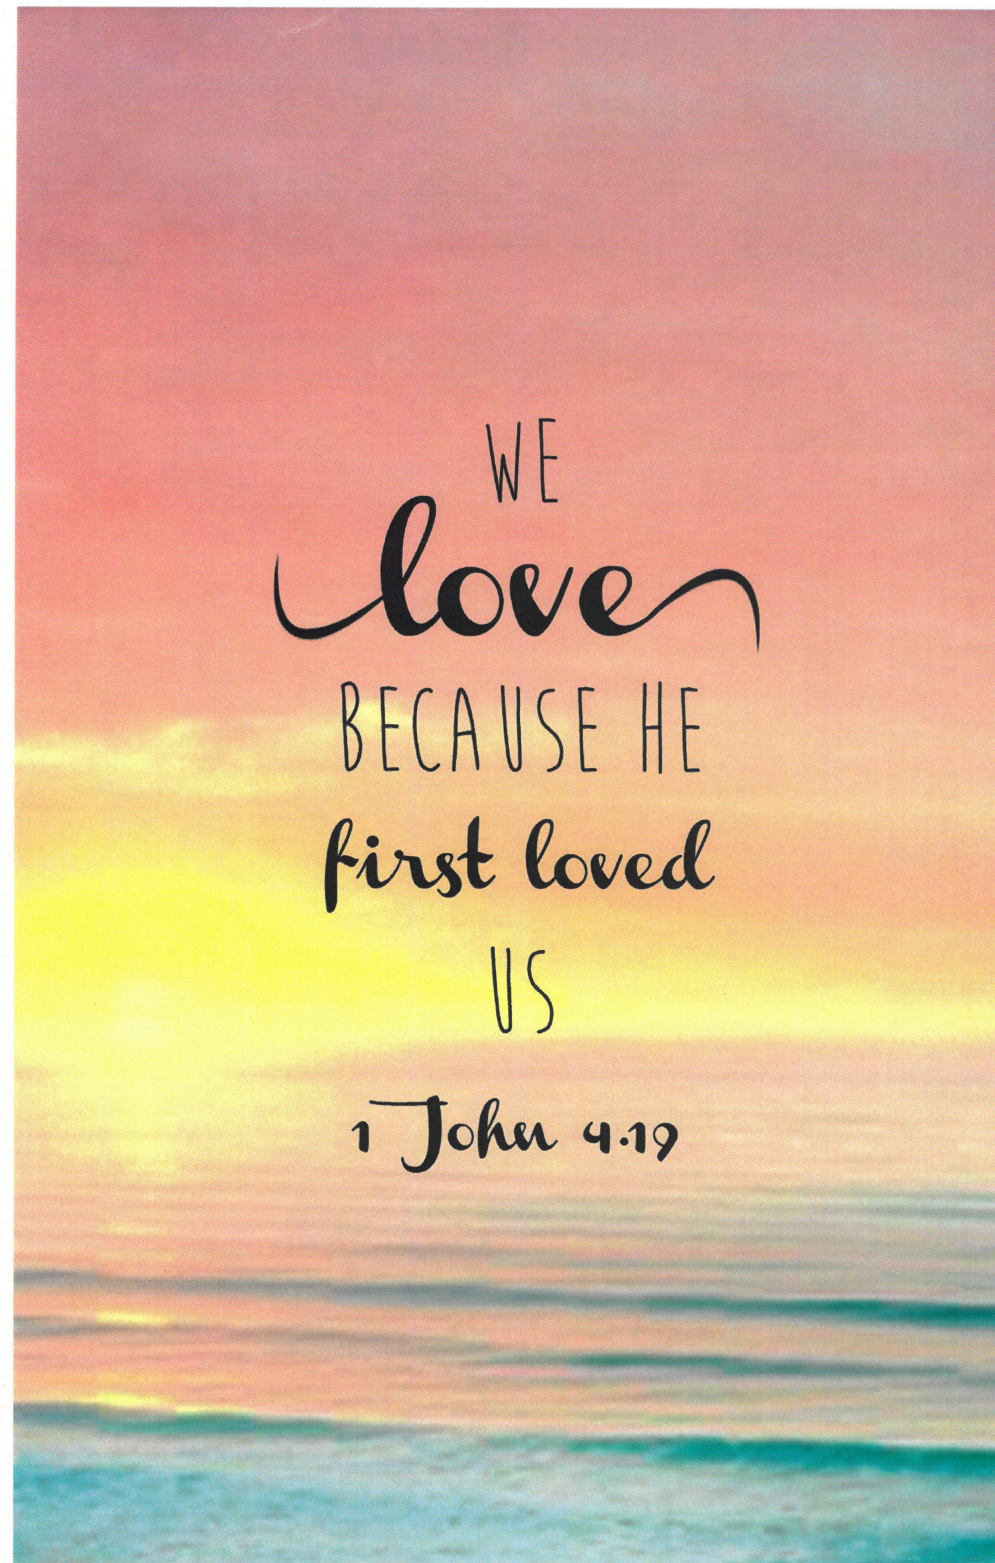 WE
love
BECAUSE HE
first loved
US
1 John 4.19